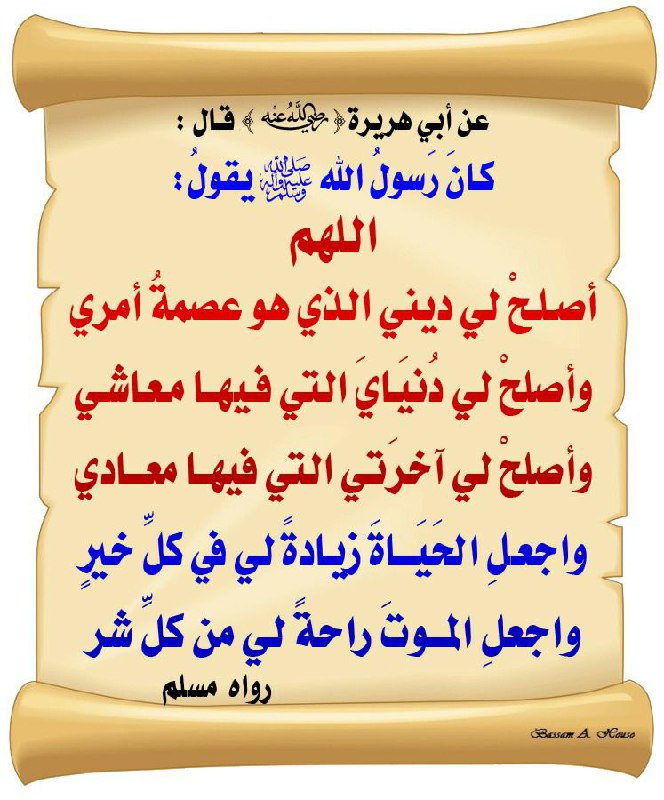 عن أبي هريرة ﴿رضي الله عنه﴾ قال :
كانَ رَسولُ الله ﷺ يقولُ :
اللهم
أصلحْ لي ديني الذي هو عصمةُ أمري
وأصلحْ لي دُنيَايَ التي فيهـا معـاشي
وأصلحْ لي آخرَتي التي فيهـا معـادي
واجعلِ الحَيَـاةَ زيـادةً لي في كلِّ خيرٍ
واجعلِ المـوتَ راحةً لي من كلِّ شر
رواه مسلم
Bassam A. Houso